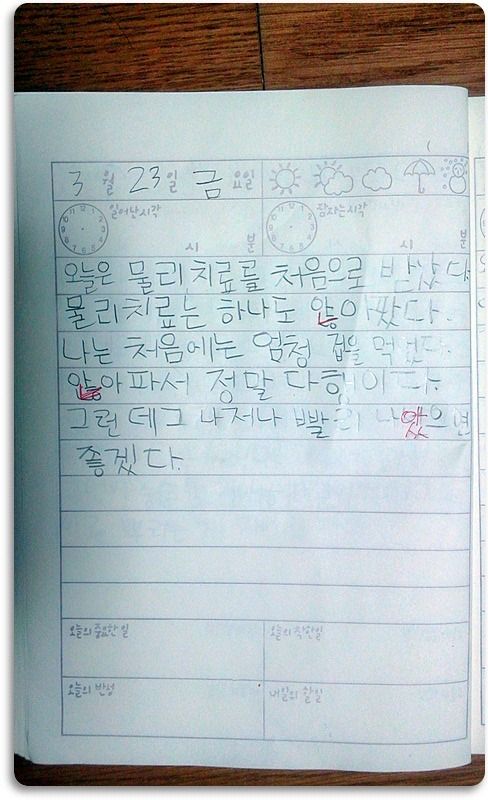 3 월 23 일 금 요일
일어난시각 잠자는시각
시 분 시 분
오늘은 물리치료를 처음으로 받았다
물리치료는 하나도 않아팠다.
나는 처음에는 엄청 겁을 먹었다.
않아파서 정말 다행이다.
그런데 그나저나 빨리 나았으면
좋겠다.
오늘의 중요한 일 오늘의 착한일
오늘의 반성 내일의 할일